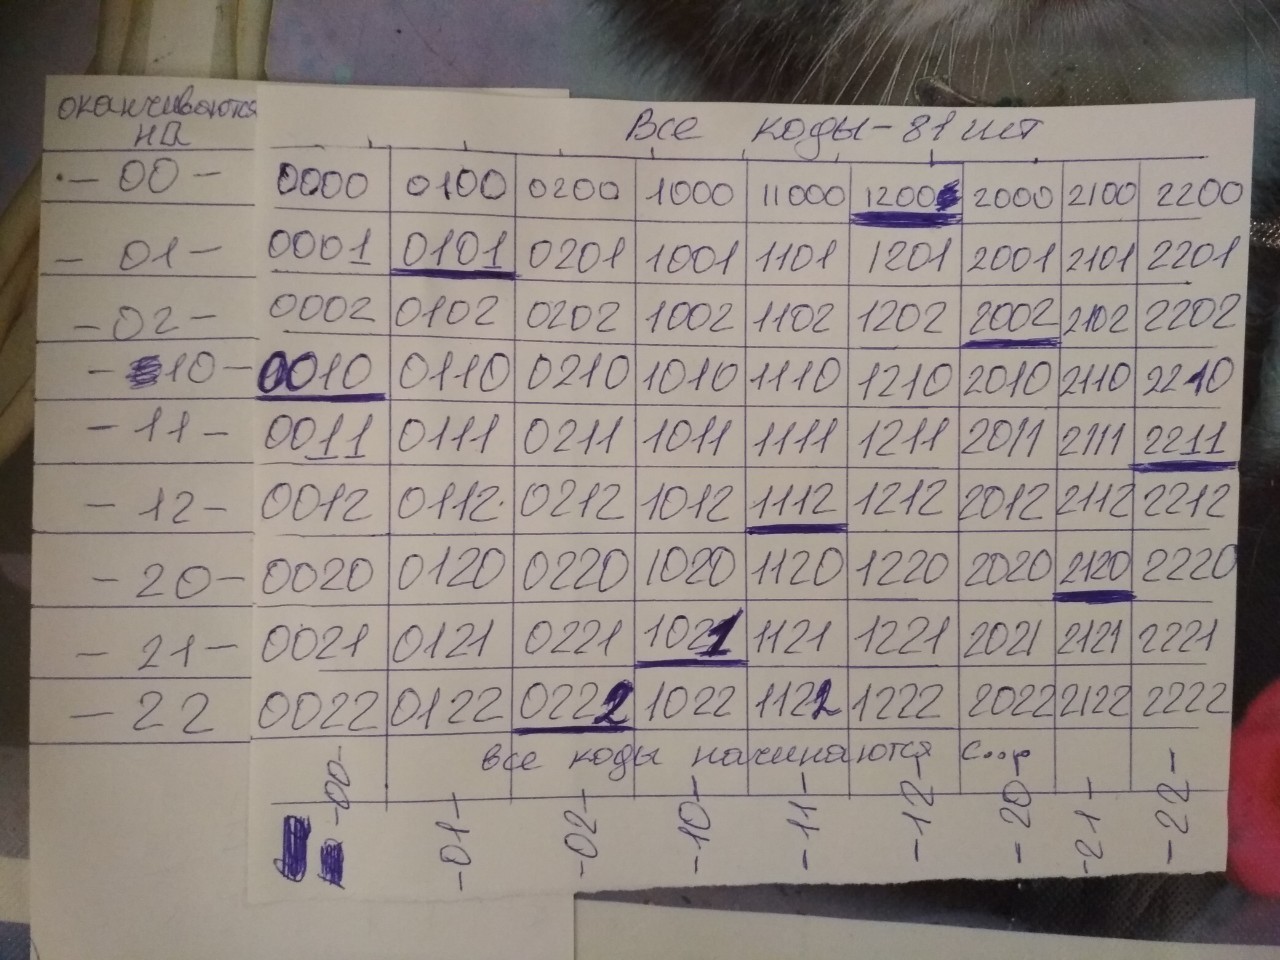 оканчиваются
на
Все коды - 81 шт
- 00 - 0000 0100 0200 1000 11000 1200 2000 2100 2200
- 01 - 0001 0101 0201 1001 1101 1201 2001 2101 2201
- 02 - 0002 0102 0202 1002 1102 1202 2002 2102 2202
- 10 - 0010 0110 0210 1010 1110 1210 2010 2110 2210
- 11 - 0011 0111 0211 1011 1111 1211 2011 2111 2211
- 12 - 0012 0112 0212 1012 1112 1212 2012 2112 2212
- 20 - 0020 0120 0220 1020 1120 1220 2020 2120 2220
- 21 - 0021 0121 0221 1021 1121 1221 2021 2121 2221
- 22 0022 0122 0222 1022 1122 1222 2022 2122 2222
все коды начинаются с...
-00- -01- -02- -10- -11- -12- -20- -21- -22-